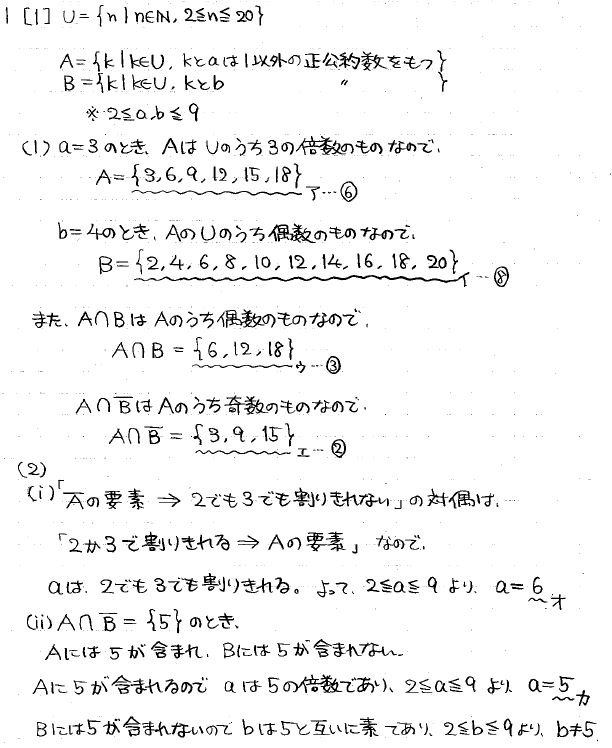 1 [1] U = {n | n∈N, 2≦n≦20}
A = {k | k∈U, kとaは1以外の正公約数をもつ}
B = {k | k∈U, kとb 〃 }
※ 2≦a,b≦9
(1) a=3のとき、AはUのうち3の倍数のものなので、
A = {3, 6, 9, 12, 15, 18} ア…⑥
b=4のとき、AのUのうち偶数のものなので、
B = {2, 4, 6, 8, 10, 12, 14, 16, 18, 20} イ…⑧
また、A∩BはAのうち偶数のものなので、
A∩B = {6, 12, 18} ウ…③
A∩B̅はAのうち奇数のものなので、
A∩B̅ = {3, 9, 15} エ…②
(2)
(i)「A̅の要素 ⇒ 2でも3でも割りきれない」の対偶は、
「2か3で割りきれる ⇒ Aの要素」なので、
aは、2でも3でも割りきれる。よって、2≦a≦9より、a=6 オ
(ii) A∩B̅ = {5}のとき、
Aには5が含まれ、Bには5が含まれない。
Aに5が含まれるので aは5の倍数であり、2≦a≦9より、a=5 カ
Bには5が含まれないので bは5と互いに素であり、2≦b≦9より、b≠5